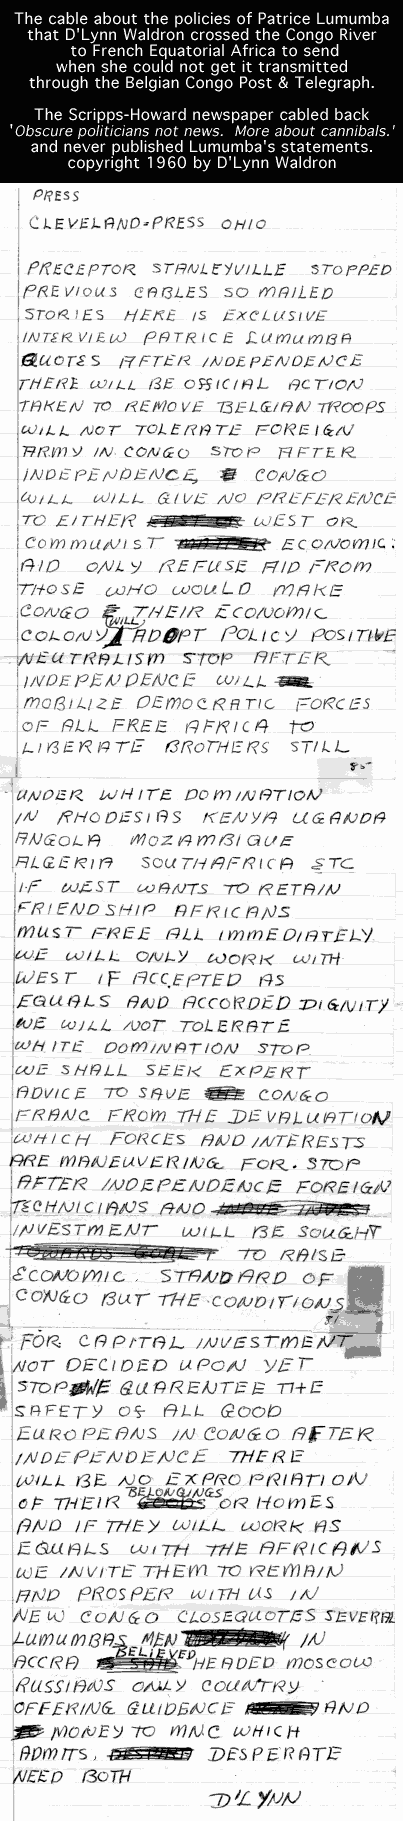 The cable about the policies of Patrice Lumumba
that D'Lynn Waldron crossed the Congo River
to French Equatorial Africa to send
when she could not get it transmitted
through the Belgian Congo Post & Telegraph.
The Scripps-Howard newspaper cabled back
'Obscure politicians not news. More about cannibals.'
and never published Lumumba's statements.
copyright 1960 by D'Lynn Waldron
PRESS
CLEVELAND-PRESS OHIO
PRECEPTOR STANLEYVILLE STOPPED
PREVIOUS CABLES SO MAILED
STORIES HERE IS EXCLUSIVE
INTERVIEW PATRICE LUMUMBA
QUOTES AFTER INDEPENDENCE
THERE WILL BE OFFICIAL ACTION
TAKEN TO REMOVE BELGIAN TROOPS
WILL NOT TOLERATE FOREIGN
ARMY IN CONGO STOP AFTER
INDEPENDENCE, CONGO
WILL WILL GIVE NO PREFERENCE
TO EITHER WEST OR
COMMUNIST ECONOMIC.
AID ONLY REFUSE AID FROM
THOSE WHO WOULD MAKE
CONGO THEIR ECONOMIC
COLONY WILL ADOPT POLICY POSITIVE
NEUTRALISM STOP AFTER
INDEPENDENCE WILL
MOBILIZE DEMOCRATIC FORCES
OF ALL FREE AFRICA TO
LIBERATE BROTHERS STILL
85
UNDER WHITE DOMINATION
IN RHODESIAS KENYA UGANDA
ANGOLA MOZAMBIQUE
ALGERIA SOUTHAFRICA ETC
IF WEST WANTS TO RETAIN
FRIENDSHIP AFRICANS
MUST FREE ALL IMMEDIATELY
WE WILL ONLY WORK WITH
WEST IF ACCEPTED AS
EQUALS AND ACCORDED DIGNITY
WE WILL NOT TOLERATE
WHITE DOMINATION STOP
WE SHALL SEEK EXPERT
ADVICE TO SAVE CONGO
FRANC FROM THE DEVALUATION
WHICH FORCES AND INTERESTS
ARE MANEUVERING FOR. STOP
AFTER INDEPENDENCE FOREIGN
TECHNICIANS AND
INVESTMENT WILL BE SOUGHT
TO RAISE
ECONOMIC. STANDARD OF
CONGO BUT THE CONDITIONS
FOR CAPITAL INVESTMENT
NOT DECIDED UPON YET
STOP WE GUARENTEE THE
SAFETY OF ALL GOOD
EUROPEANS IN CONGO AFTER
INDEPENDENCE THERE
WILL BE NO EXPROPRIATION
OF THEIR BELONGINGS OR HOMES
AND IF THEY WILL WORK AS
EQUALS WITH THE AFRICANS
WE INVITE THEM TO REMAIN
AND PROSPER WITH US IN
NEW CONGO CLOSEQUOTES SEVERAL
LUMUMBAS MEN IN
ACCRA BELIEVED HEADED MOSCOW
RUSSIANS ONLY COUNTRY
OFFERING GUIDENCE AND
MONEY TO MNC WHICH
ADMITS, DESPERATE
NEED BOTH
D'LYNN